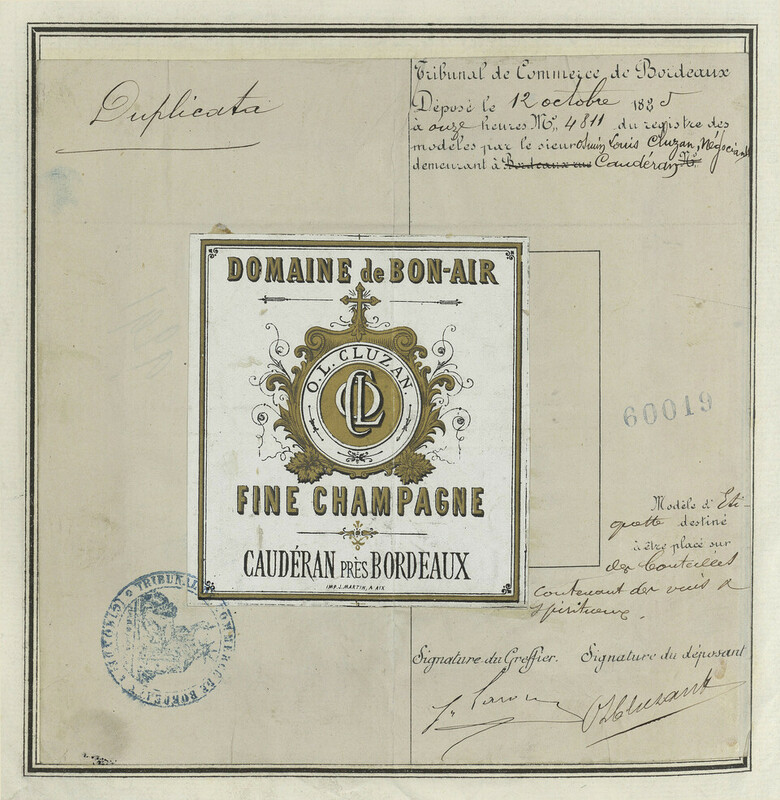 Duplicata
Tribunal de Commerce de Bordeaux
Déposé le 12 octobre 1885
à onze heures Nº, 4811 du registre des
modèles par le sieur Louis Cluzan, Négociant
demeurant à Bordeaux rue Caudéran Nº.
DOMAINE de BON-AIR
O.L. CLUZAN.
OLC
FINE CHAMPAGNE
CAUDÉRAN PRÈS BORDEAUX
IMP. J. MARTIN, A AIX
60019
Modèle d'Eti-
quette destiné
à être placé sur
des bouteilles
contenant des vins &
spiritueux.
TRIBUNAL DE COMMERCE DE BORDEAUX
Signature du Greffier. Signature du déposant
OLCluzan